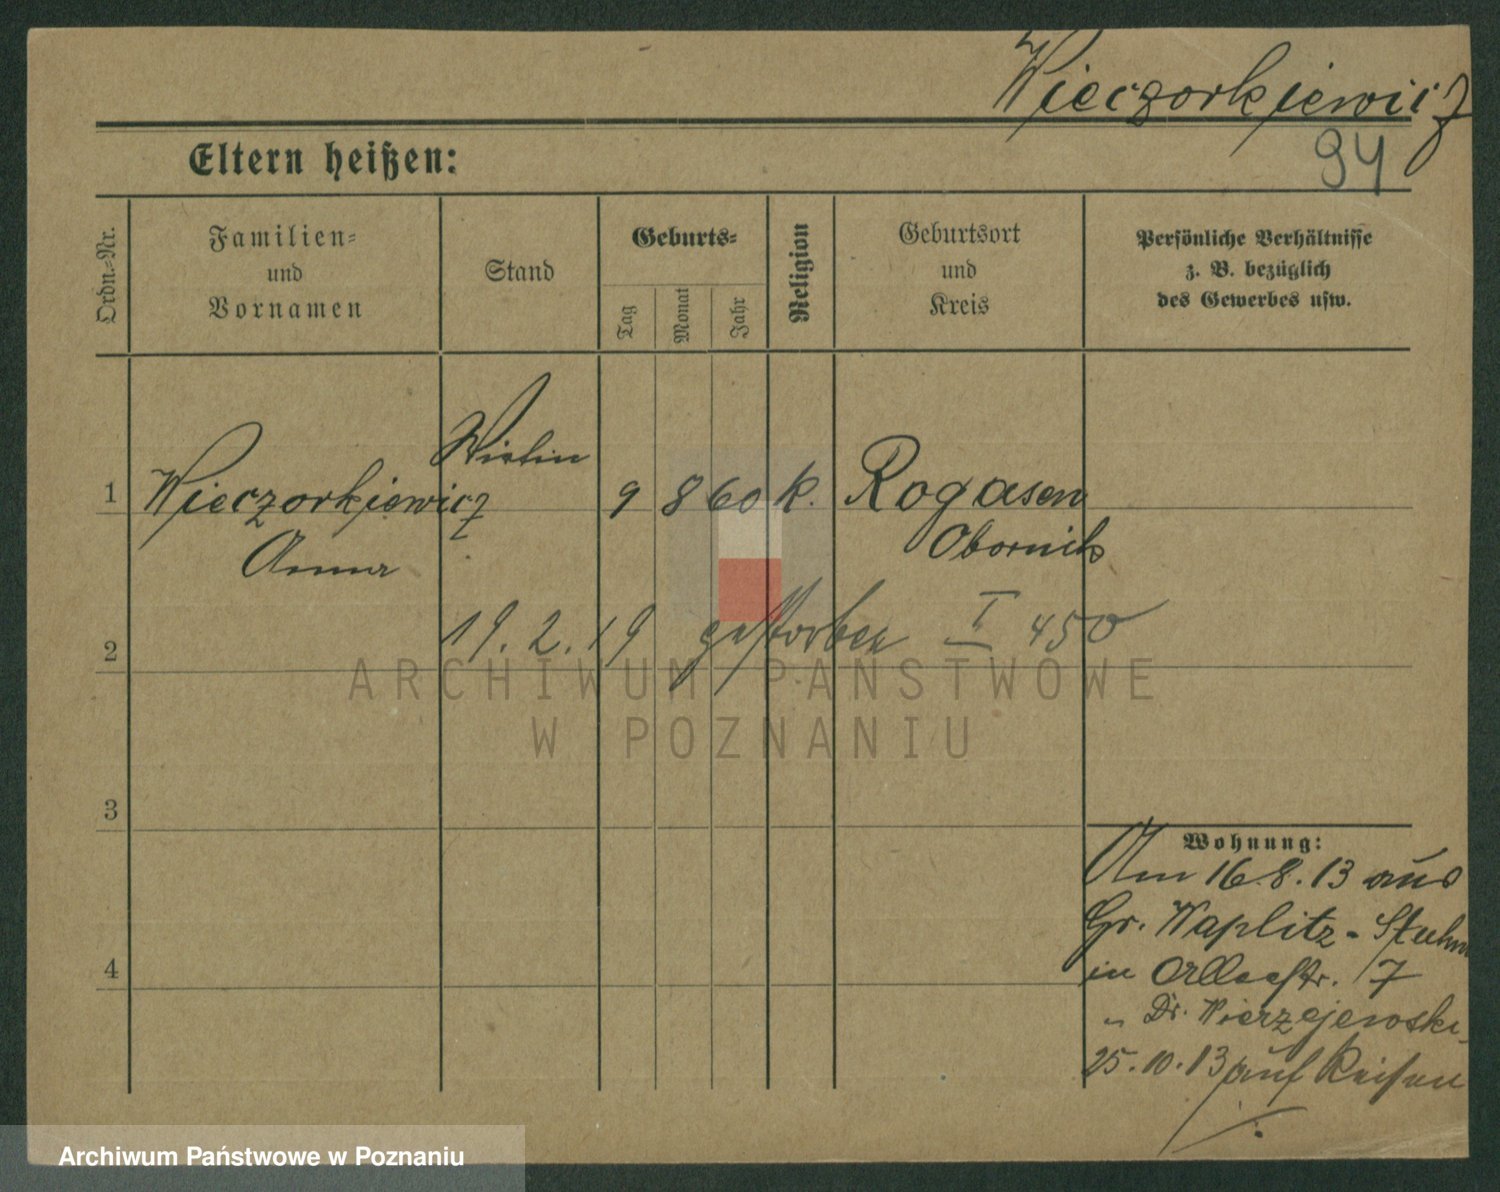 Wieczorkiewicz
94
Eltern heißen:
Ordn.-Nr.
Familien-
und
Vornamen
Stand
Geburts-
Tag
Monat
Jahr
Religion
Geburtsort
und
Kreis
Persönliche Verhältnisse
z. B. bezüglich
des Gewerbes usw.
1 Wieczorkiewicz 9 8 60 k. Rogasen
Anna Obornik
19. 2. 19 gestorben I 450
2
ARCHIWUM PAŃSTWOWE
W POZNANIU
3
4
Wohnung:
Am 16.8.13 aus
Gr. Waplitz - Stuhm
in 17
" Dr. Pierzejewski
25.10.13 auf Reisen
Archiwum Państwowe w Poznaniu